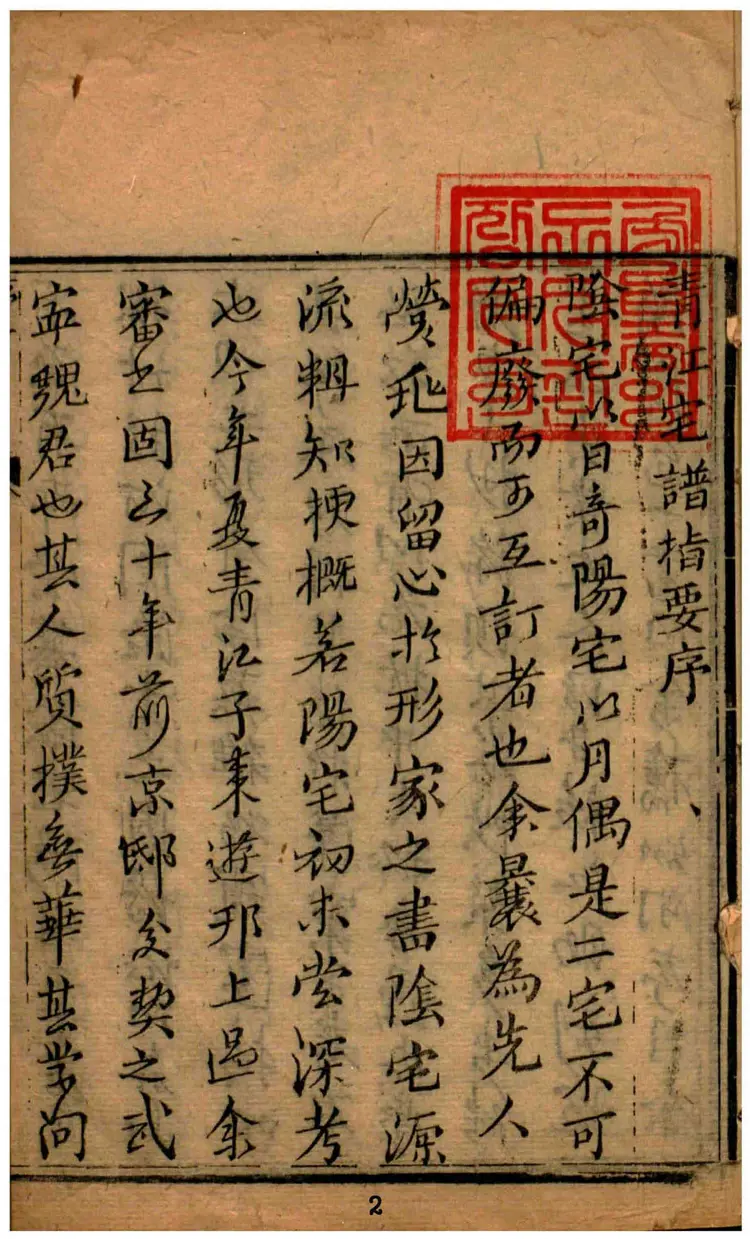 青江宅譜指要序
陰宅以日奇陽宅以月偶是二宅不可
偏廢而可互訂者也余曩為先人
營因留心扵形家之書陰宅源
流輙知梗概若陽宅初未嘗深考
也今年夏青江子来遊邗上過余
審之固三十年前京邸交契之武
寧魏君也其人質樸無華其學問
2